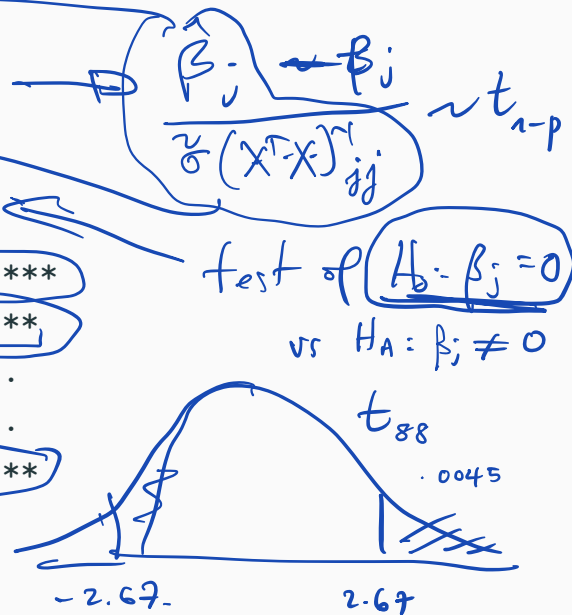 β̂j - βj
σ̃ (XᵀX)⁻¹jj
~ tn-p
test of H0: βj = 0
***
**
vs HA: βj ≠ 0
.
t88
.
.0045
**
-2.67
2.67